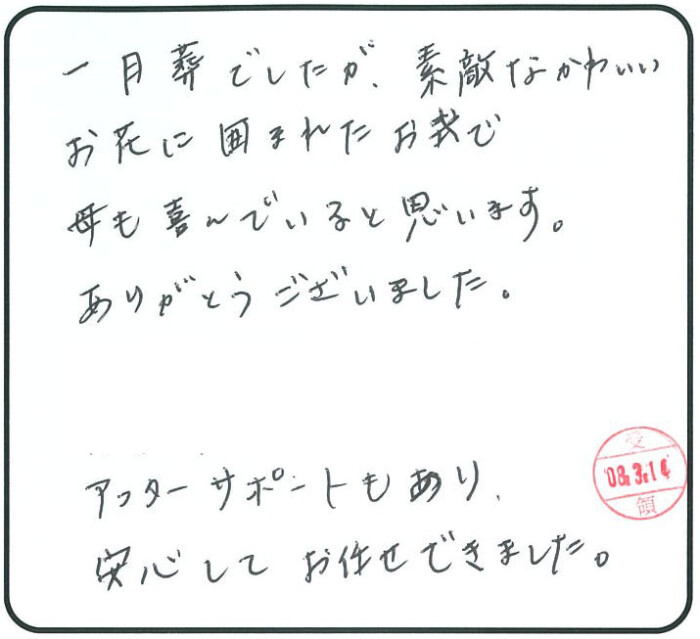 一日葬でしたが、素敵なかわいい
お花に囲まれたお式で
母も喜んでいると思います。
ありがとうございました。
アフターサポートもあり、
安心してお任せできました。
受
'08.3.14
領